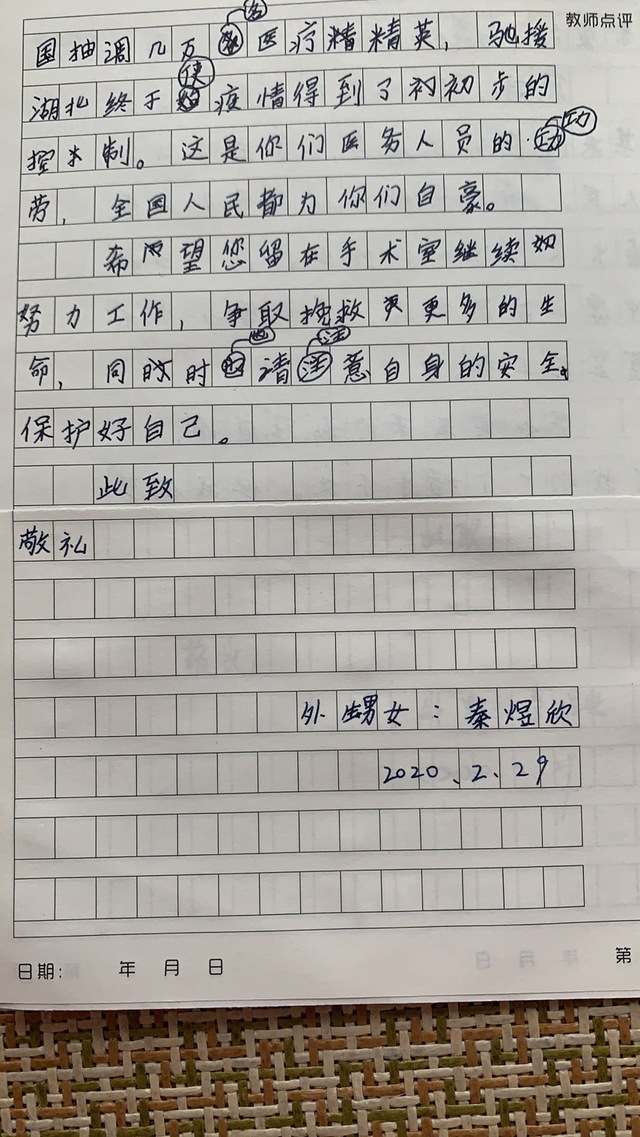 教师点评
国抽调几万名医疗精精英，驰援
湖北终于使疫情得到了初步的
控制。这是你们医务人员的功
劳，全国人民都为你们自豪。
希望您留在手术室继续奴
努力工作，争取挽救更更多的生
命，同时时也请注意自身的安全。
保护好自己。
此致
敬礼
外甥女：秦煜欣
2020.2.29
日期： 年 月 日 第